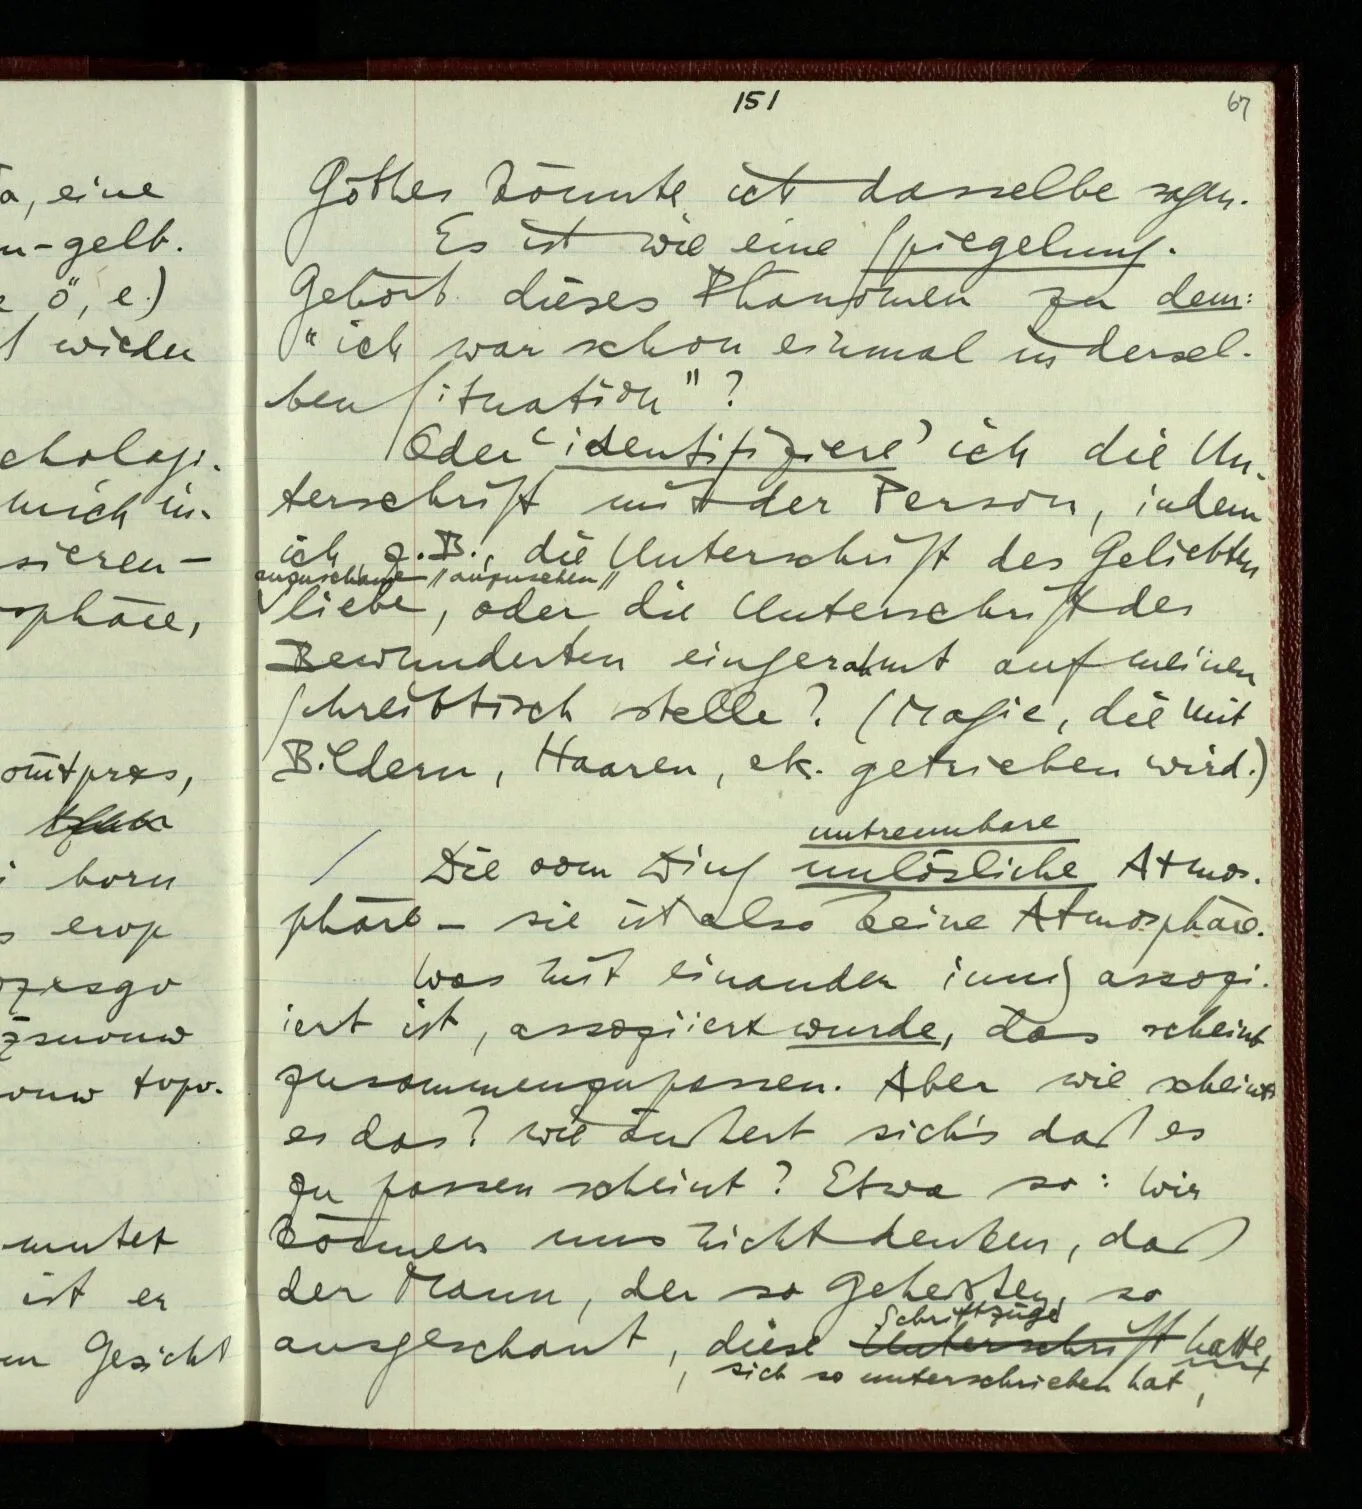 151
67
a, eine
n-gelb.
ö, e.)
wieder
chologi-
mich in-
sieren –
sphäre,
born
erop
mutet
ist er
Gesicht
Göthes könnte ich dasselbe sagen.
Es ist wie eine Spiegelung.
Gehört dieses Phänomen zu dem:
"ich war schon einmal in dersel-
ben Situation"?
Oder 'identifiziere' ich die Un-
terschrift mit der Person, indem
ich z.B., die Unterschrift des Geliebten
anzuschaue "anzusehen"
liebe, oder die Unterschrift des
Bewunderten eingerahmt auf meinen
Schreibtisch stelle? (Magie, die mit
Bildern, Haaren, etc. getrieben wird.)
untrennbare
Die vom Ding unlösliche Atmos-
phäre – sie ist also keine Atmosphäre.
Was mit einander innig assozi-
iert ist, assoziiert wurde, das scheint
zusammenzupassen. Aber wie scheint
es das? wie äußert sich's daß es
zu passen scheint? Etwa so: Wir
können uns nicht denken, daß
der Mann, der so geheißen, so
Schriftzüge
ausgeschaut, diese Unterschrift hatte
sich so unterschrieben hat,